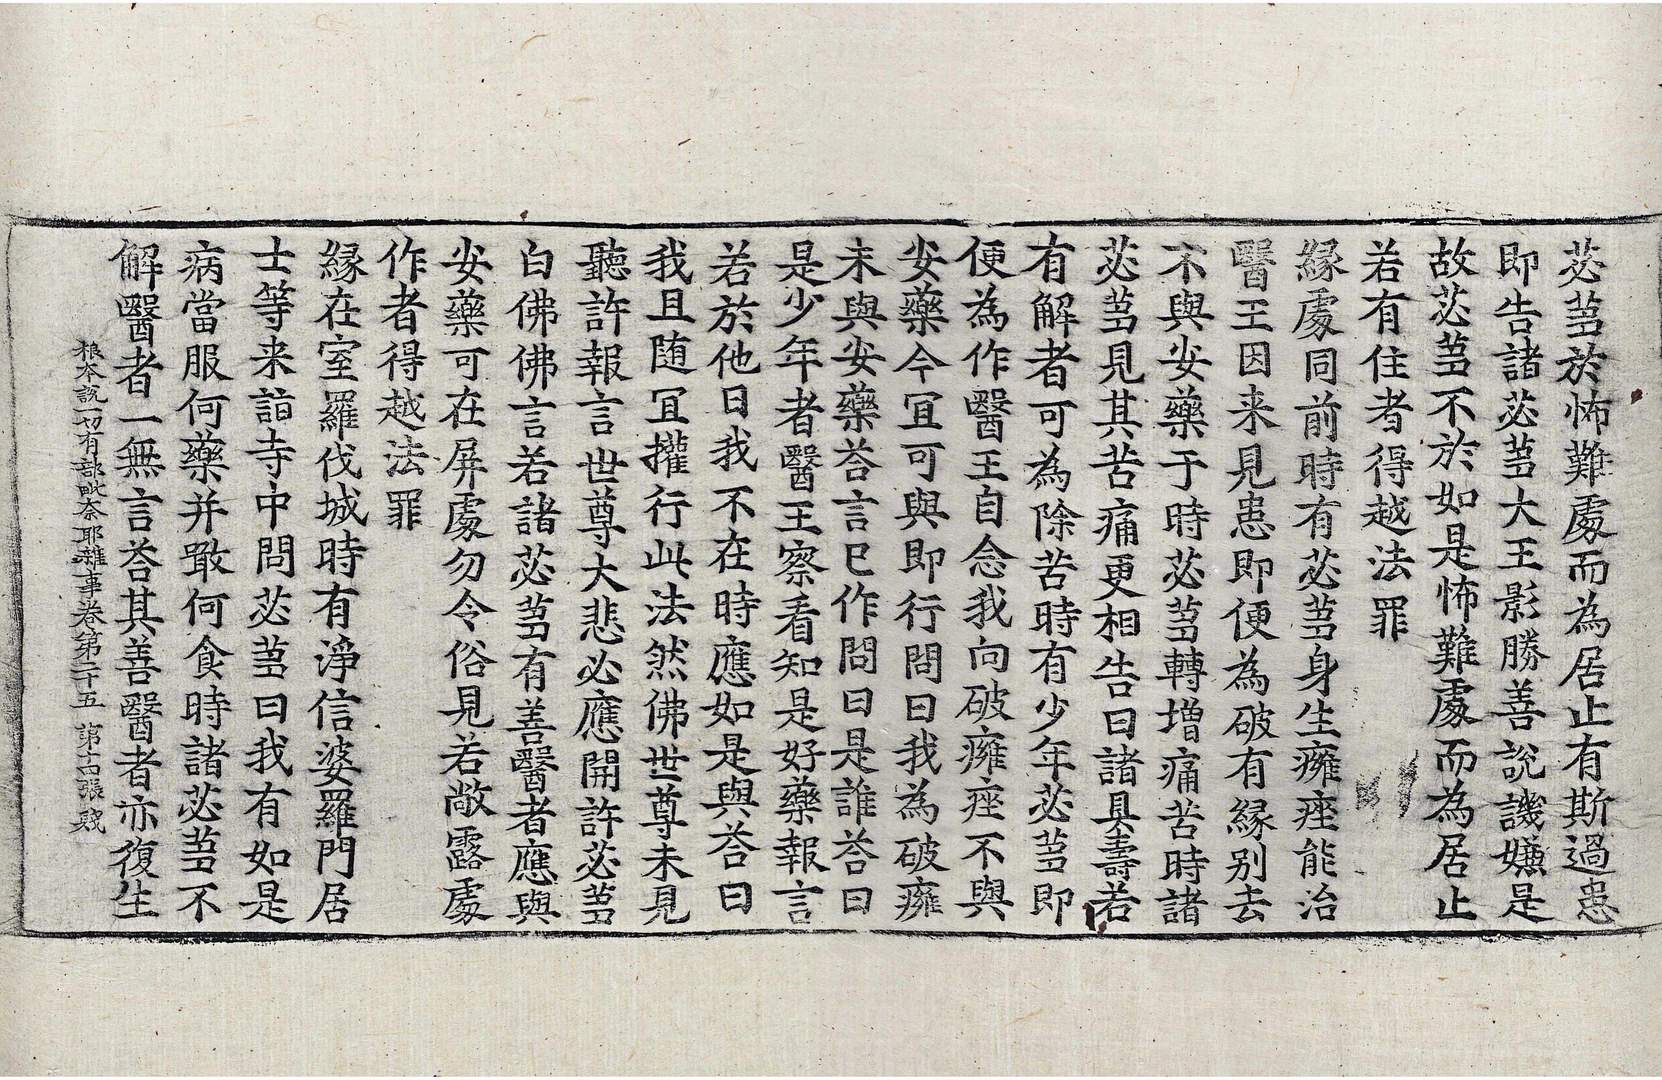 苾芻於怖難處而為居止有斯過患
即告諸苾芻大王影勝善說譏嫌是
故苾芻不於如是怖難處而為居止
若有住者得越法罪
緣處同前時有苾芻身生癰痤能治
醫王因来見患即便為破有緣別去
不與安藥于時苾芻轉增痛苦時諸
苾芻見其苦痛更相告曰諸具壽若
有解者可為除苦時有少年苾芻即
便為作醫王自念我向破癰痤不與
安藥今冝可與即行問曰我為破癰
未與安藥荅言巳作問曰是誰荅曰
是少年者醫王察看知是好藥報言
若於他日我不在時應如是與荅曰
我且随冝㩲行此法然佛世尊未見
聽許報言世尊大悲必應開許苾芻
白佛佛言若諸苾芻有善醫者應與
安藥可在屏處勿令俗見若敞露處
作者得越法罪
緣在室羅伐城時有淨信婆羅門居
士等来詣寺中問苾芻曰我有如是
病當服何藥并敢何食時諸苾芻不
解醫者一無言荅其善醫者亦復生
根本說一切有部毗奈耶雜事卷第二十五 第十四張